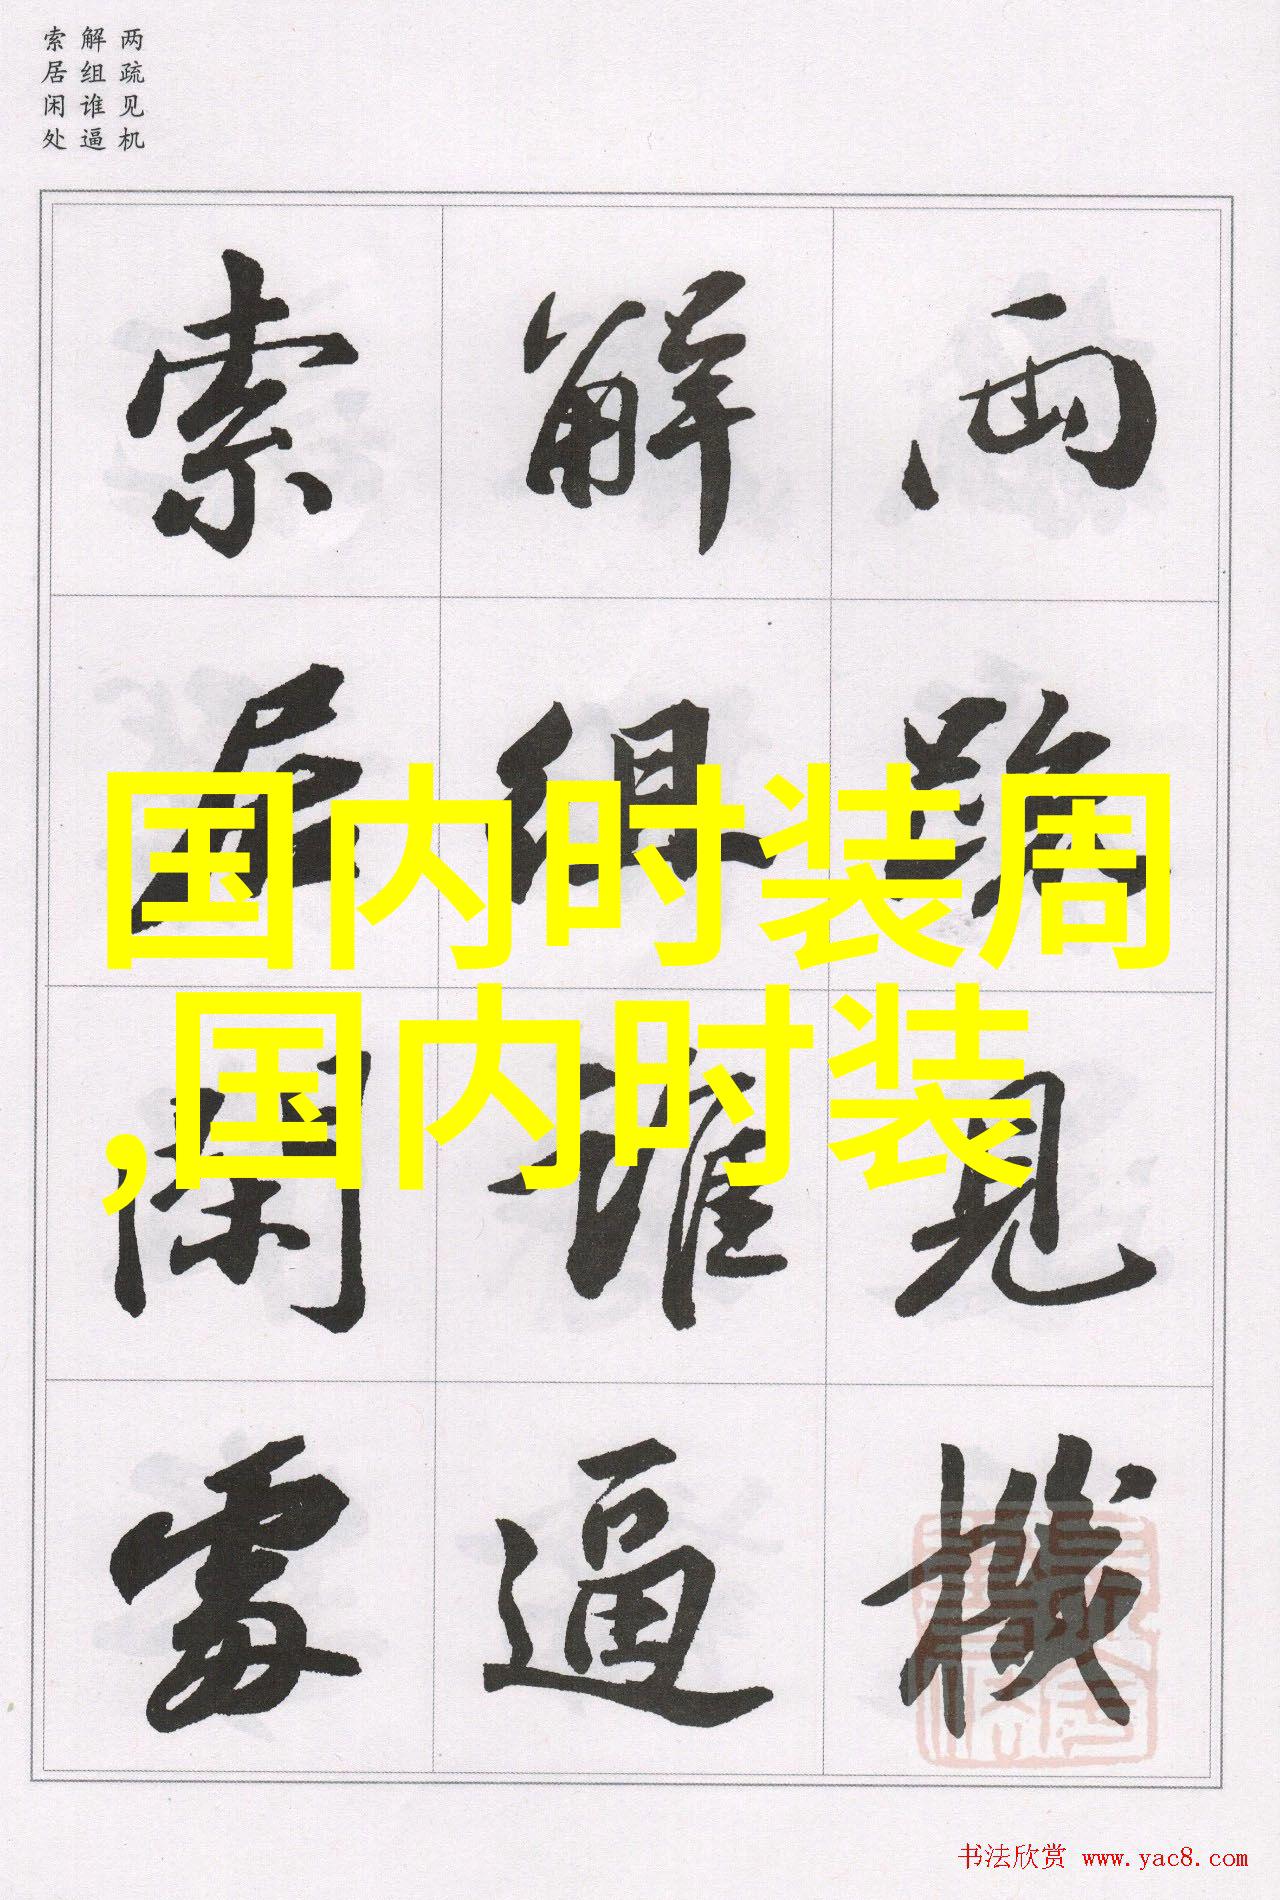 两疏见机
解组谁逼
索居闲处
两疏見機
解組誰逼
索居閑處
国内时装周
,国内时装
书法欣赏 www.yac8.com